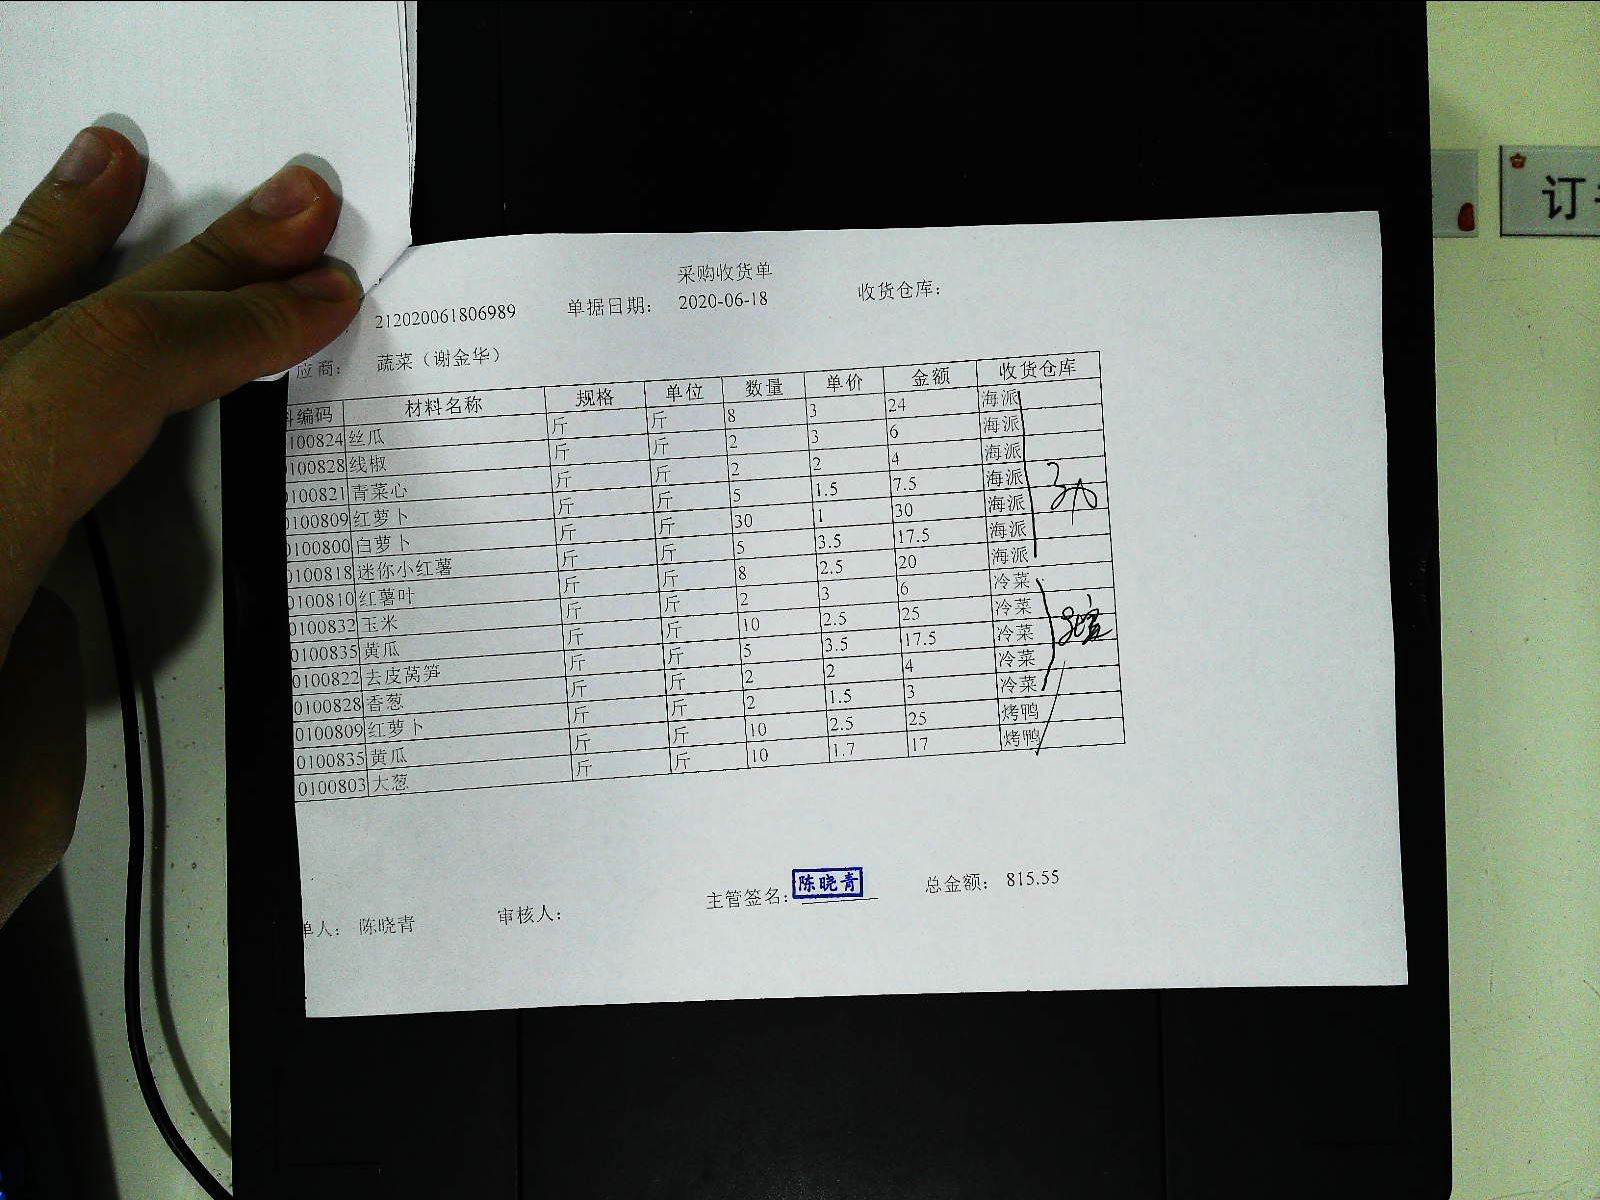 采购收货单
212020061806989 单据日期: 2020-06-18 收货仓库:
应商: 蔬菜（谢金华）
编码 材料名称 规格 单位 数量 单价 金额 收货仓库
100824 丝瓜 斤 斤 8 3 24 海派
100828 线椒 斤 斤 2 3 6 海派
0100821 青菜心 斤 斤 2 2 4 海派
0100809 红萝卜 斤 斤 5 1.5 7.5 海派
0100800 白萝卜 斤 斤 30 1 30 海派
0100818 迷你小红薯 斤 斤 5 3.5 17.5 海派
0100810 红薯叶 斤 斤 8 2.5 20 海派
0100832 玉米 斤 斤 2 3 6 冷菜
0100835 黄瓜 斤 斤 10 2.5 25 冷菜
0100822 去皮莴笋 斤 斤 5 3.5 17.5 冷菜
0100828 香葱 斤 斤 2 2 4 冷菜
0100809 红萝卜 斤 斤 2 1.5 3 冷菜
0100835 黄瓜 斤 斤 10 2.5 25 烤鸭
0100803 大葱 斤 斤 10 1.7 17 烤鸭
单人: 陈晓青 审核人: 主管签名: 陈晓青 总金额: 815.55
订